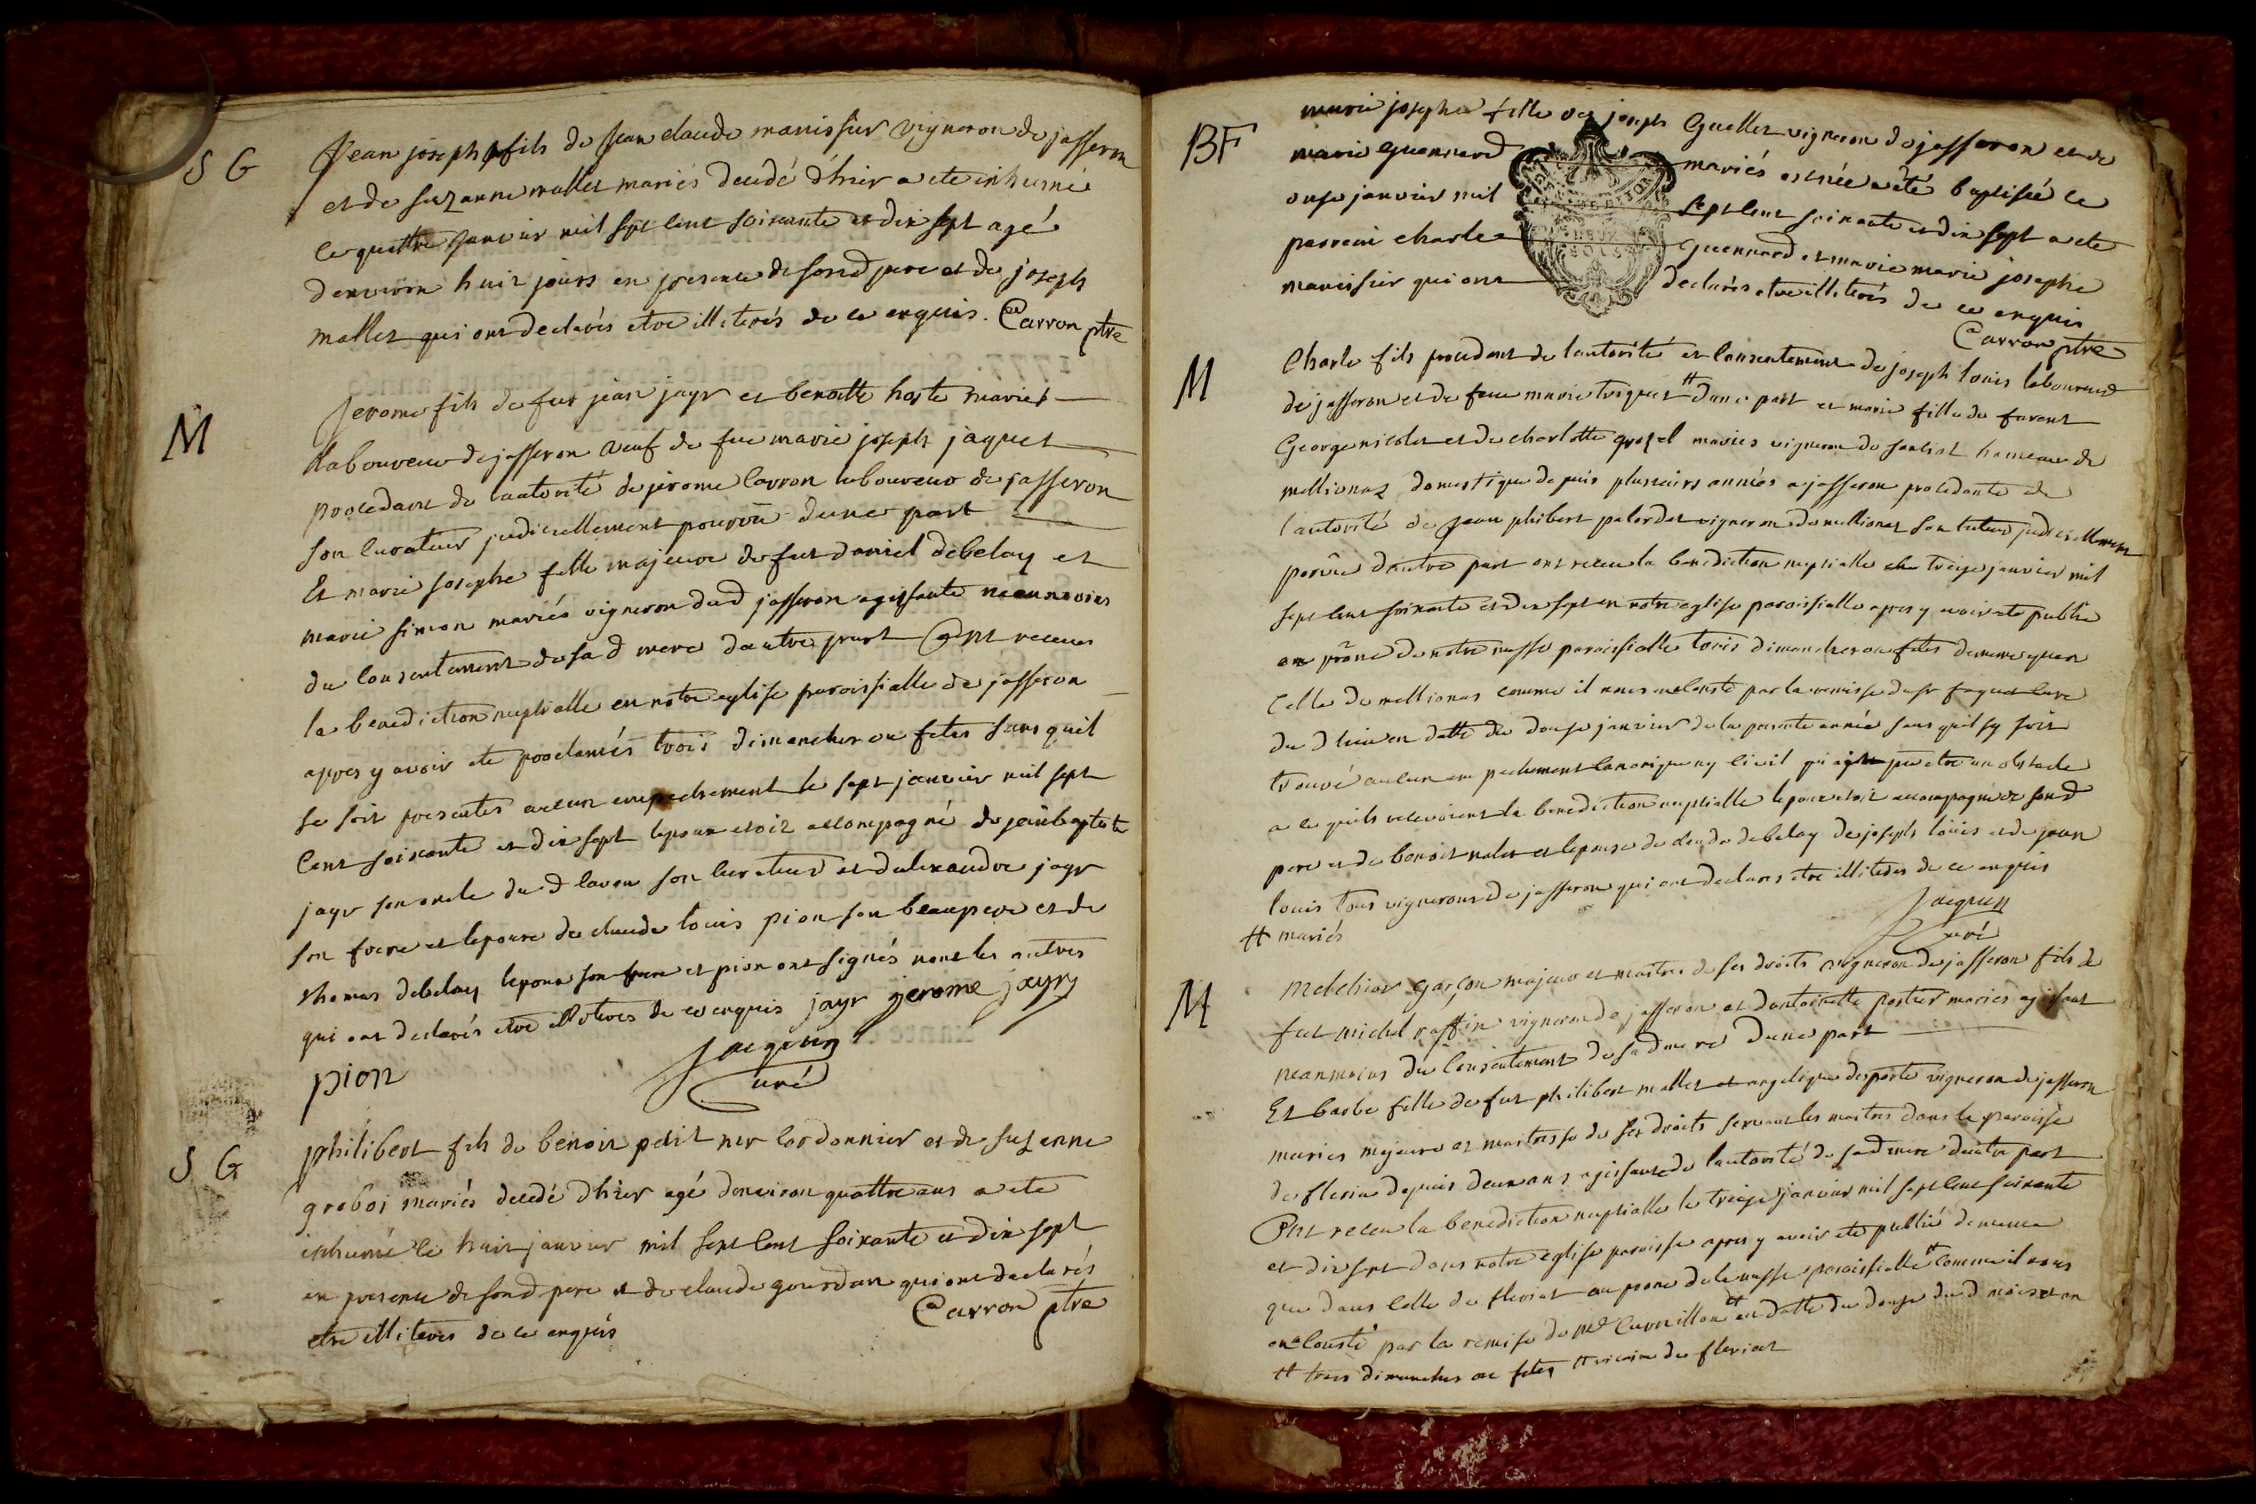 S G
Jean joseph fils de Jean claude manissier vigneron de jasseron
et de suzanne mallet mariés decedé d'hier a ete inhumé
le quattre janvier mil sept cent soixante et dix sept agé
denviron huit jours en presence de sond pere et de joseph
mallet qui ont declarés etre illiterés de ce enquis. Carron ptre
M
Jerome fils de fut jean jayr et benoitte hoste mariés
laboureur de jasseron veuf de fue marie joseph jaquet
procedant de lautorité de jerome carron laboureur de jasseron
son curateur judiciellement pourvu dune part
Et marie josephe fille majeure de fut daniel debelay et
marie simon mariés vigneron dud jasseron agissante néanmoins
du consentement de sad mere dautre part Ont receus
la benediction nuptialle en notre eglise paroissialle de jasseron
apres y avoir ete proclamés trois dimanches ou fetes sans quil
se soit presentés aucun empechement le sept janvier mil sept
cent soixante et dix sept lepoux etoit accompagné de jeanbaptiste
jayr son oncle du d caron son curateur et dalexandre jayr
son frere et lepouse de claude louis pion son beaupere et de
thomas debelay lepoux son frere et pion ont signés non les autres
qui ont declarés etre illiterés de ce enquis jayr jerome jayr
pion
Jacquin
Curé
S G
philibert fils de benoit petit cordonnier et de suzanne
grobos mariés decedé d'hier agé denviron quattre ans a ete
inhumé le huit janvier mil sept cent soixante et dix sept
en presence de sond pere et de claude gourdan qui ont declarés
etre illiterés de ce enquis
Carron ptre
BF
marie josephe fille de joseph Guellet vigneron de jasseron et de
marie Guennard mariés est née a été baptisée le
onze janvier mil sept cent soixante et dix sept a ete
parrein charle Guennard et marie marie josephe
manissier qui ont declarés etre illiterés de ce enquis
Carron ptre
M
Charle fils procedant de lautorité et consentement de joseph louis laboureur
de jasseron et de feue marie triquet # dune part et marie fille de
George nicolet et de charlotte grozel mariés vigneron de sanciat hameau de
meillionaz domestique depuis plusieurs années a jasseron procedante de
lautorité de Jean philibert palordet vigneron de meillionas son tuteur judiciellement
porvu dautre part ont receu la benediction nuptialle le treize janvier mil
sept cent soixante et dix sept en notre eglise paroissialle apres y avoir ete publié
au prône de notre messe paroissialle trois dimanches ou fetes de meme quen
celle de meillionas comme il nous a consté par la remisse du sr curé
du d lieu en datte du douze janvier de la presente année sans quil sy soit
trouvé aucun empechement canonique ny civil qui peu etre un obstacle
a ce quils recevoient la benediction nuptialle lepoux etoit accompagné de sond
pere et de benoit et lepouse de claude debelay de joseph louis et de jean
louis tous vignerons de jasseron qui ont declarés etre illiterés de ce enquis
# mariés
Jacquin
Curé
M
Melchior garçon majeur et maitre de ses droits vigneron de jasseron fils de
fut michel raffin vigneron de jasseron et dantoinette perrier mariés agissant
neanmoins du consentement de sad mere dune part
Et barbe fille de fut philibert mallet et angelique desporte vigneron de jasseron
mariés majeure et maitresse de ses droits servant les maitres dans la paroisse
de fleria depuis deux ans agissante de lautorité de sad mere dautre part
Ont receu la benediction nuptialle le treize janvier mil sept cent soixante
et dix sept dans notre eglise paroisse apres y avoir ete publié de meme
que dans celle de fleriat au prone de la messe paroissialle # comme il nous
en a consté par la remise de # en datte du douze du d mois et an
# trois dimanches ou fetes # vicaire de fleriat